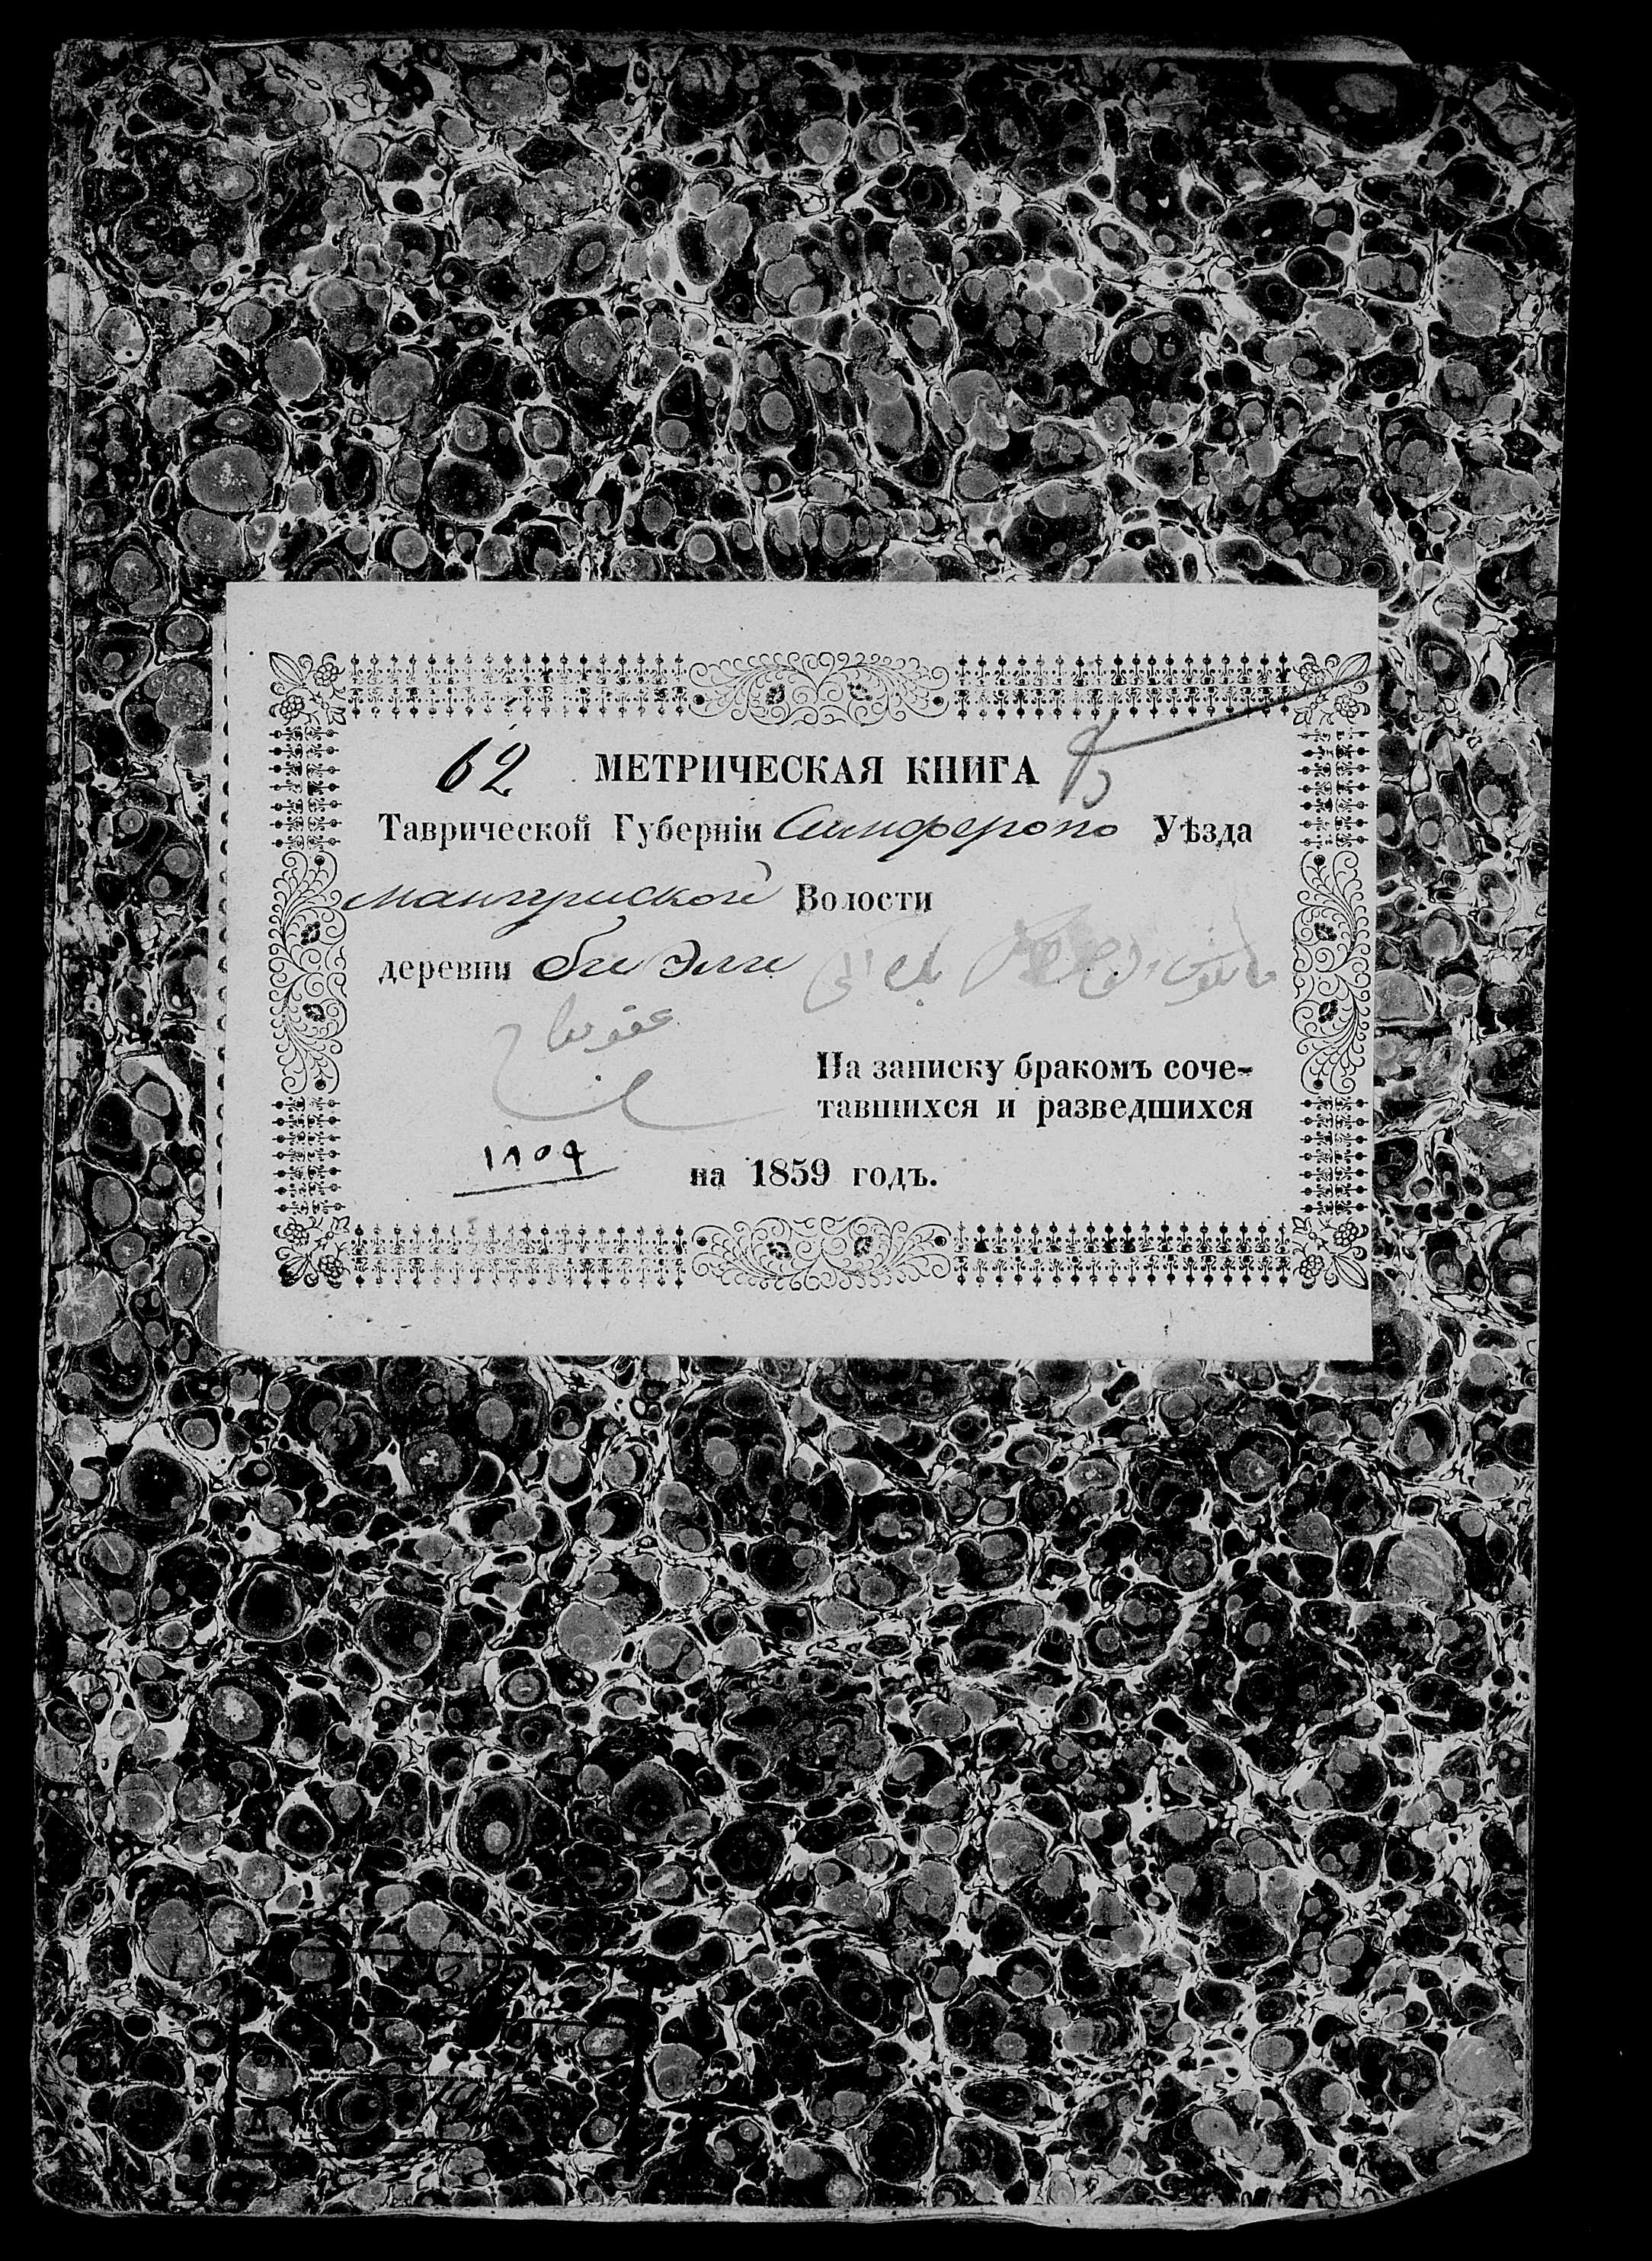 62 МЕТРИЧЕСКАЯ КНИГА
Таврической Губерніи Симферопо Уѣзда
мангушской Волости
деревни би Эли
На записку бракомъ соче-
тавшихся и разведшихся
١٨٥٩
на 1859 годъ.